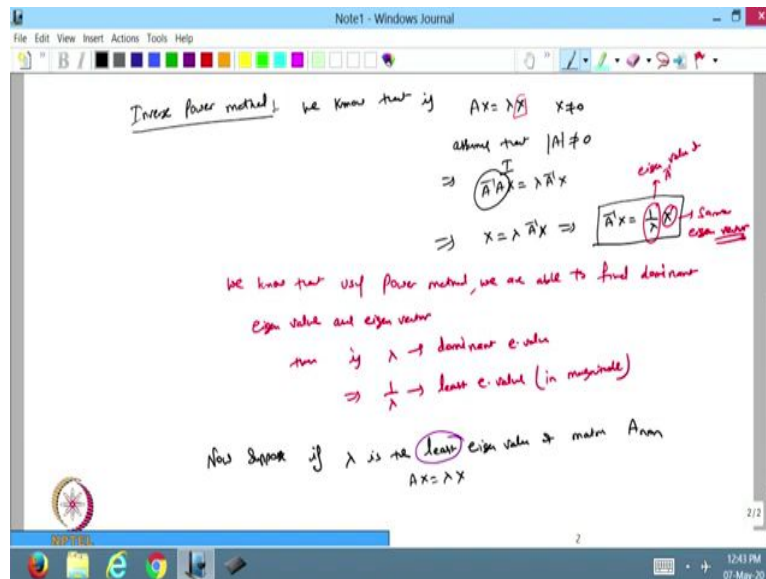 Note1 - Windows Journal
File Edit View Insert Actions Tools Help
Inverse Power method: we know that if AX = λX X≠0
assume that |A| ≠ 0
I
⇒ A⁻¹AX = λA⁻¹X
eigen value of A⁻¹
⇒ X = λA⁻¹X ⇒ A⁻¹X = 1/λ X → same eigen vector
we know that using Power method, we are able to find dominant
eigen value and eigen vector
then if λ → dominant e.value
⇒ 1/λ → least e.value (in magnitude)
Now suppose if λ is the least eigen value of matrix Anxn
AX = λX
2/2
NPTEL
2
12:43 PM
07-May-20